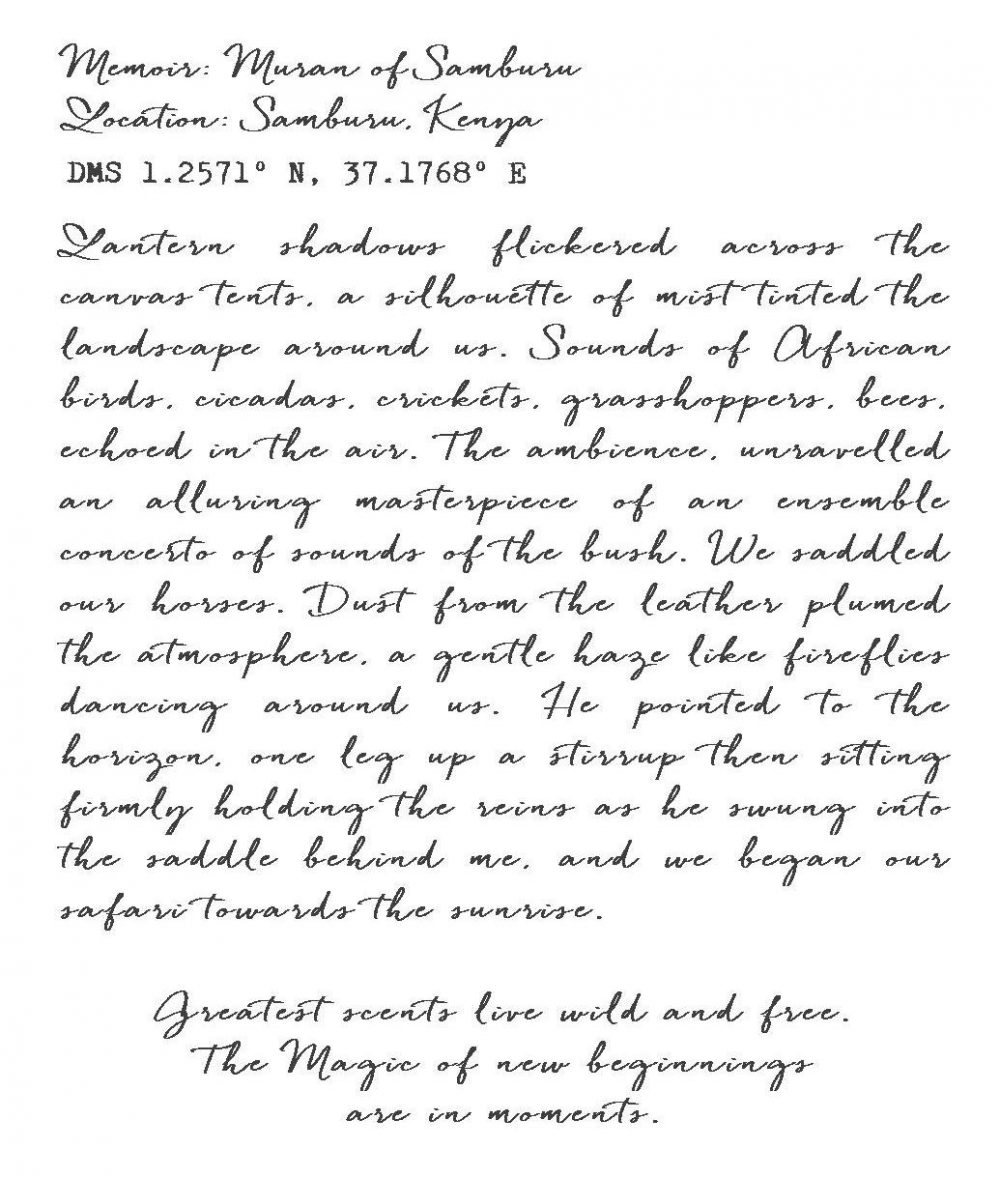 Memoir: Muran of Samburu
Location: Samburu, Kenya
DMS 1.2571° N, 37.1768° E
Lantern shadows flickered across the
canvas tents, a silhouette of mist tinted the
landscape around us. Sounds of African
birds, cicadas, crickets, grasshoppers, bees,
echoed in the air. The ambience, unravelled
an alluring masterpiece of an ensemble
concerto of sounds of the bush. We saddled
our horses. Dust from the leather plumed
the atmosphere, a gentle haze like fireflies
dancing around us. He pointed to the
horizon, one leg up a stirrup then sitting
firmly holding the reins as he swung into
the saddle behind me, and we began our
safari towards the sunrise.
Greatest scents live wild and free.
The Magic of new beginnings
are in moments.